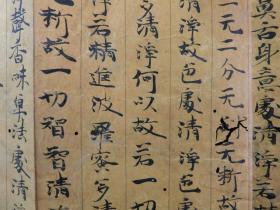 鼻舌身意處清淨若
二无二分无別无斷故
清淨故色處清淨色處
多清淨何以故若一切
淨若精進波羅蜜多清
无斷故一切智智清
聲香味觸法處清淨